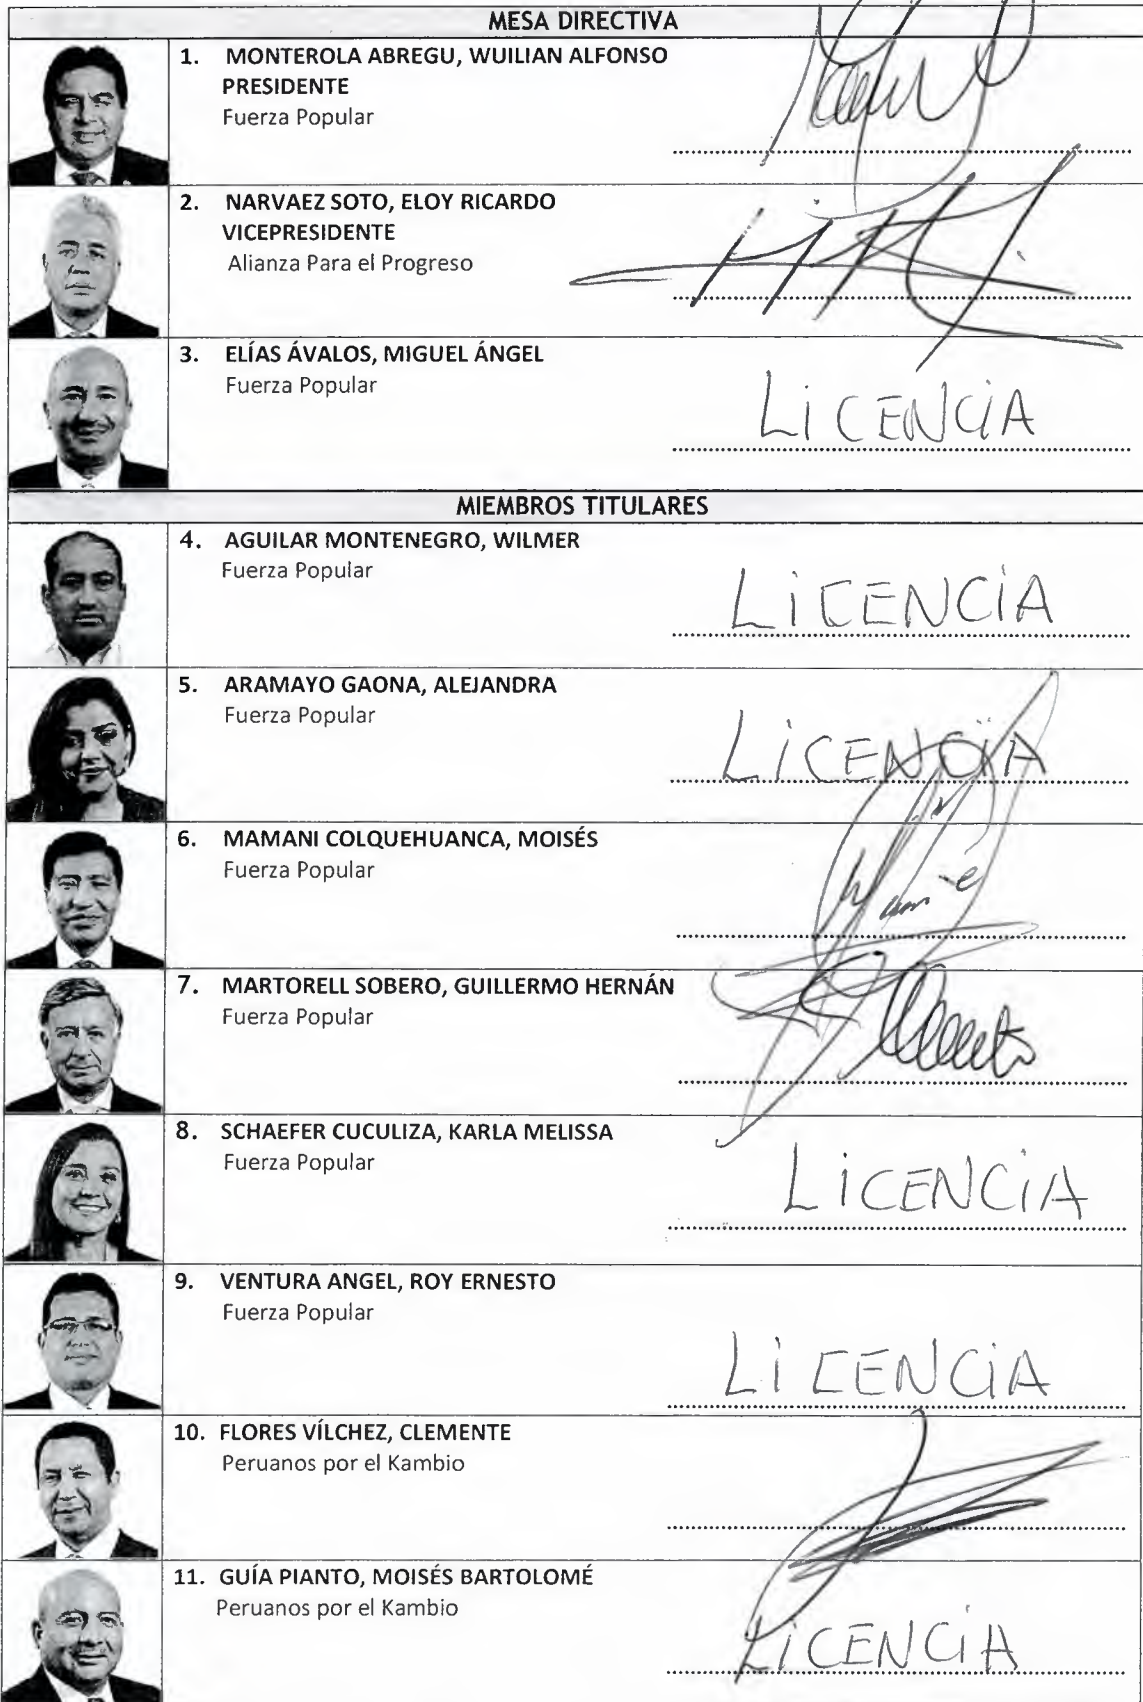 MESA DIRECTIVA
1. MONTEROLA ABREGU, WUILIAN ALFONSO
PRESIDENTE
Fuerza Popular
2. NARVAEZ SOTO, ELOY RICARDO
VICEPRESIDENTE
Alianza Para el Progreso
3. ELÍAS ÁVALOS, MIGUEL ÁNGEL
Fuerza Popular
LiCENCiA
MIEMBROS TITULARES
4. AGUILAR MONTENEGRO, WILMER
Fuerza Popular
LiCENCiA
5. ARAMAYO GAONA, ALEJANDRA
Fuerza Popular
LiCENCiA
6. MAMANI COLQUEHUANCA, MOISÉS
Fuerza Popular
7. MARTORELL SOBERO, GUILLERMO HERNÁN
Fuerza Popular
8. SCHAEFER CUCULIZA, KARLA MELISSA
Fuerza Popular
LiCENCiA
9. VENTURA ANGEL, ROY ERNESTO
Fuerza Popular
LiCENCiA
10. FLORES VÍLCHEZ, CLEMENTE
Peruanos por el Kambio
11. GUÍA PIANTO, MOISÉS BARTOLOMÉ
Peruanos por el Kambio
LiCENCiA